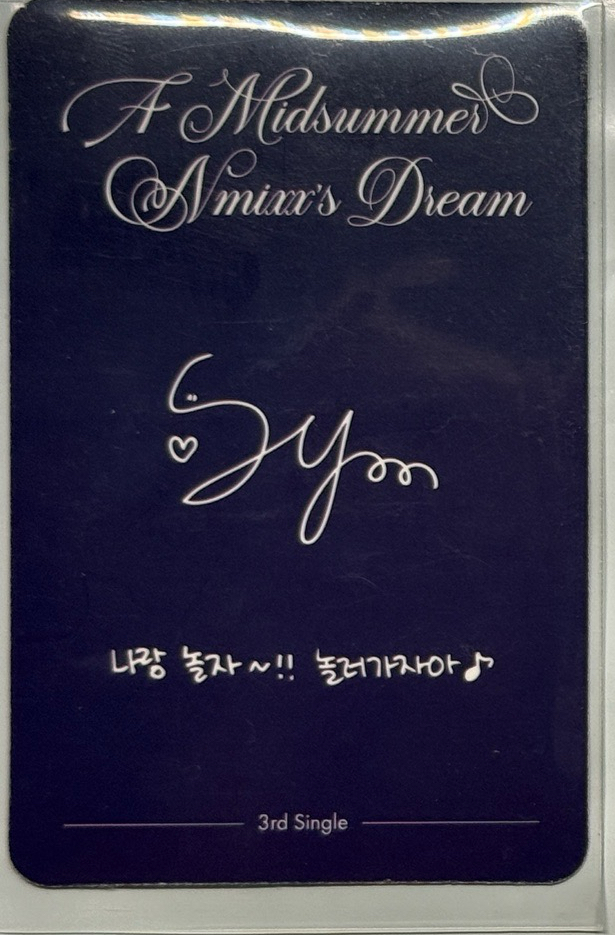 A Midsummer
Nmixx's Dream
Sym
나랑 놀자~!! 놀러가자아♪
3rd Single